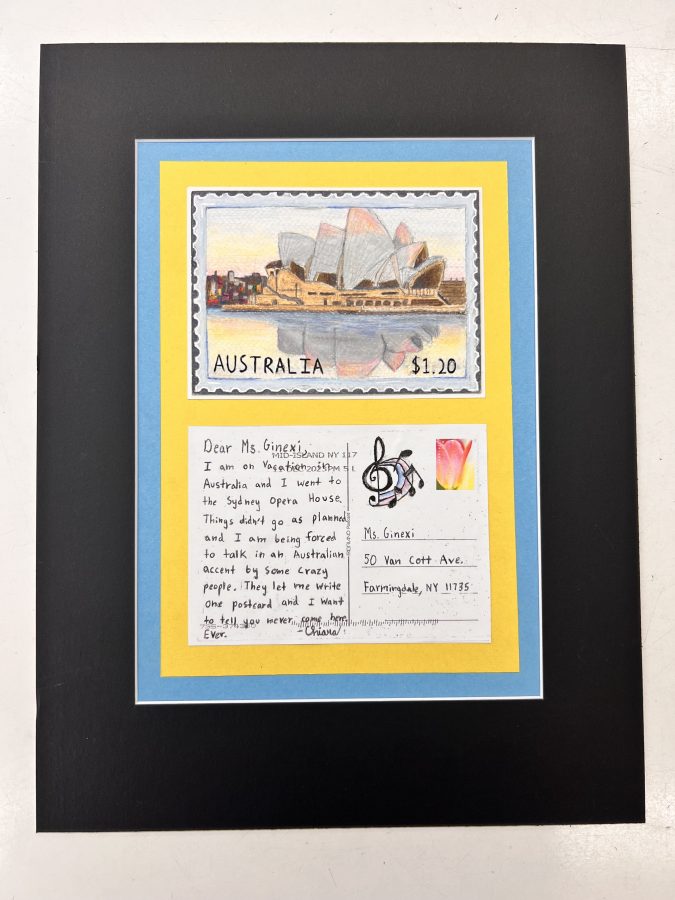 AUSTRALIA $1.20
Dear Ms. Ginexi,
MID-ISLAND NY 117
I am on Vacation in
Australia and I went to
the Sydney Opera House.
Things didn't go as planned
and I am being forced
to talk in an Australian
accent by some crazy
people. They let me write
one postcard and I want
to tell you never come here
Ever. -Chiara
Ms. Ginexi
50 Van Cott Ave.
Farmingdale, NY 11735